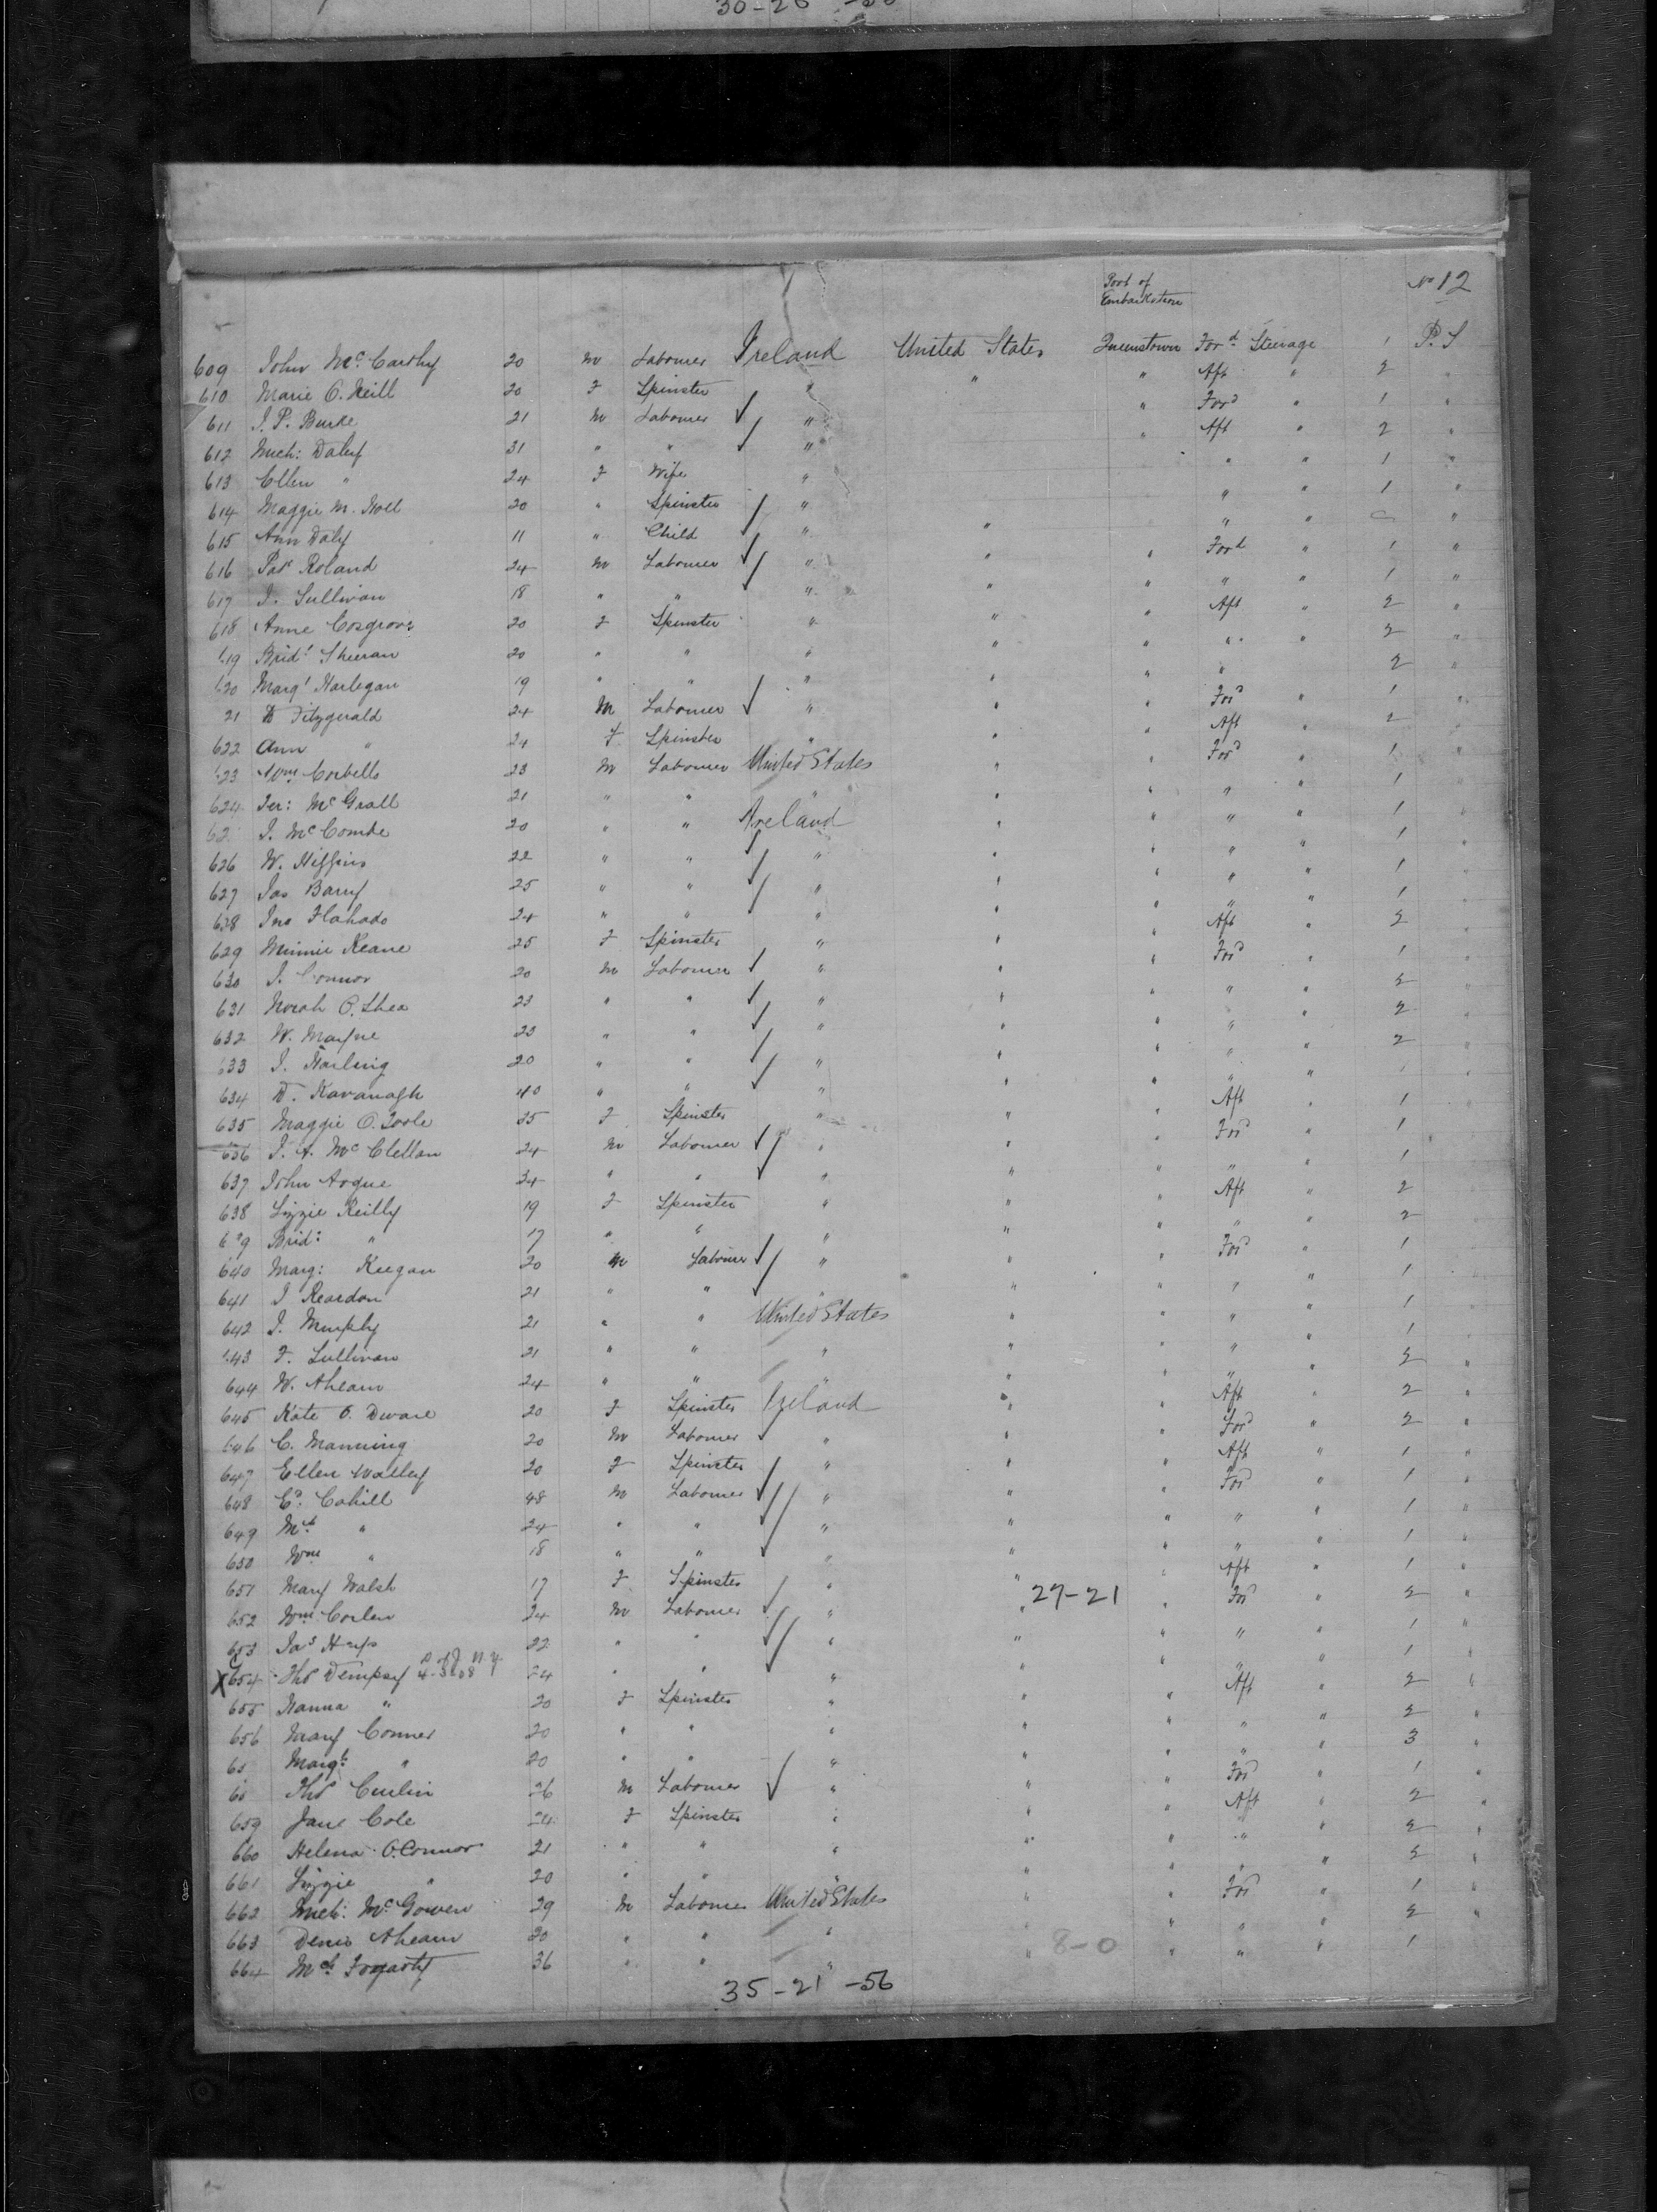 30-26
Port of
Embarkation
No 12
609 John Mc. Carthy 20 m Labourer Ireland United States Queenstown Ford Steerage 1 P.S
610 Marie O. Neill 20 F Spinster " " " Aft " 2 "
611 J. P. Burke 21 m Labourer " " Ford " 1 "
612 Mich: Daley 31 " " " " Aft " 2 "
613 Ellen " 24 F Wife " " " 1 "
614 Maggie M. Holl 20 " Spinster " " " 1 "
615 Ann Daly 11 " Child " " " " "
616 Patk Roland 24 m Labourer " " " Ford " 1 "
617 J. Sullivan 18 " " " " " " " 1 "
618 Anne Cosgrove 20 F Spinster " " " Aft " 2 "
619 Bridt Sheeran 20 " " " " " " " 2 "
620 Margt Harlegan 19 " " " " " " 2 "
21 D Fitzgerald 24 M Labourer " " " Ford " 1 "
622 Ann " 24 F Spinster " " " Aft " 2 "
623 Wm Corbells 23 M Labourer United States " " Ford " 1 "
624 Jer: Mc Grall 21 " " " " " " 1
62 J. McCombe 20 " " Ireland " " " " 1
626 W. Higgins 22 " " " " " " " 1
627 Jas Barry 25 " " " " " " " 1
628 Jno Flahado 24 " " " " " " " 1
629 Minnie Keane 25 F Spinster " " " Aft " 2
630 J. Connor 20 M Labourer " " " Ford " 1
631 Norah O. Shea 23 " " " " " " " 2
632 W. Mayne 23 " " " " " " " 2
633 J. Harling 20 " " " " " " " 2
634 D. Kavanagh 40 " " " " " " " 1
635 Maggie O. Toole 25 F Spinster " " " Aft " 1
636 J. A. Mc Clellan 24 M Labourer " " " Ford " 1
637 John Argue 34 " " " " " " " 1
638 Lizzie Reilly 19 F Spinster " " " Aft " 2
639 Brid: " 17 " " " " " " 2
640 Marg: Keegan 20 M Labourer " " " Ford " 1
641 J Reardon 21 " " " " " " " 1
642 J. Murphy 21 " " United States " " " " 1
643 F. Sullivan 21 " " " " " " " 1
644 W. Ahearn 24 " " " " " " " 2 "
645 Kate O. Dware 20 F Spinster Ireland " " Aft " 2 "
646 C. Manning 20 M Labourer " " " Ford " 2 "
647 Ellen Walley 20 F Spinster " " " Aft " 1 "
648 Ed. Cahill 48 M Labourer " " " Ford " 1 "
649 Mch " 24 " " " " " " " 1 "
650 Wm " 18 " " " " " " " 1 "
651 Mary Walsh 17 F Spinster " " Aft " 1 "
27-21
652 Wm Corlen 24 M Labourer " " " Ford " 2 "
653 Jas Hays 22 " " " " " " 1 "
X 654 Thos Dempsey 24 " " " " " " 1 "
655 Hanna " 20 F Spinster " " " Aft " 2 "
656 Mary Conner 20 " " " " " " " 2
65 Margt " 20 " " " " " " " 3 "
65 Thos Curlin 26 M Labourer " " " Ford " 1 "
659 Jane Cole 24 F Spinster " " " Aft " 2 "
660 Helena O.Connor 21 " " " " " " " 2 "
661 Lizzie " 20 " " " " " " " 2 "
662 Mich: Mc Gowen 29 M Labourer United States " " Ford " 1 "
663 Denis Ahearn 20 " " " " " " 2 "
8-0
664 Mch Fogarty 36 " " " " " " " 1
35-21-56